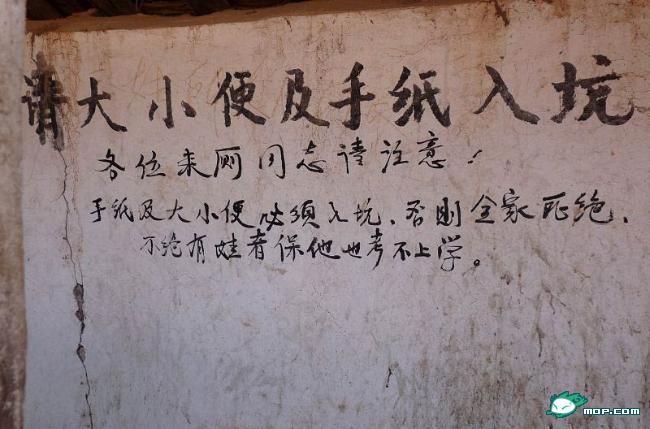 请大小便及手纸入坑
各位来厕同志请注意！
手纸及大小便必须入坑、否则全家死绝、
不绝有娃者保他也考不上学。
MOP.COM